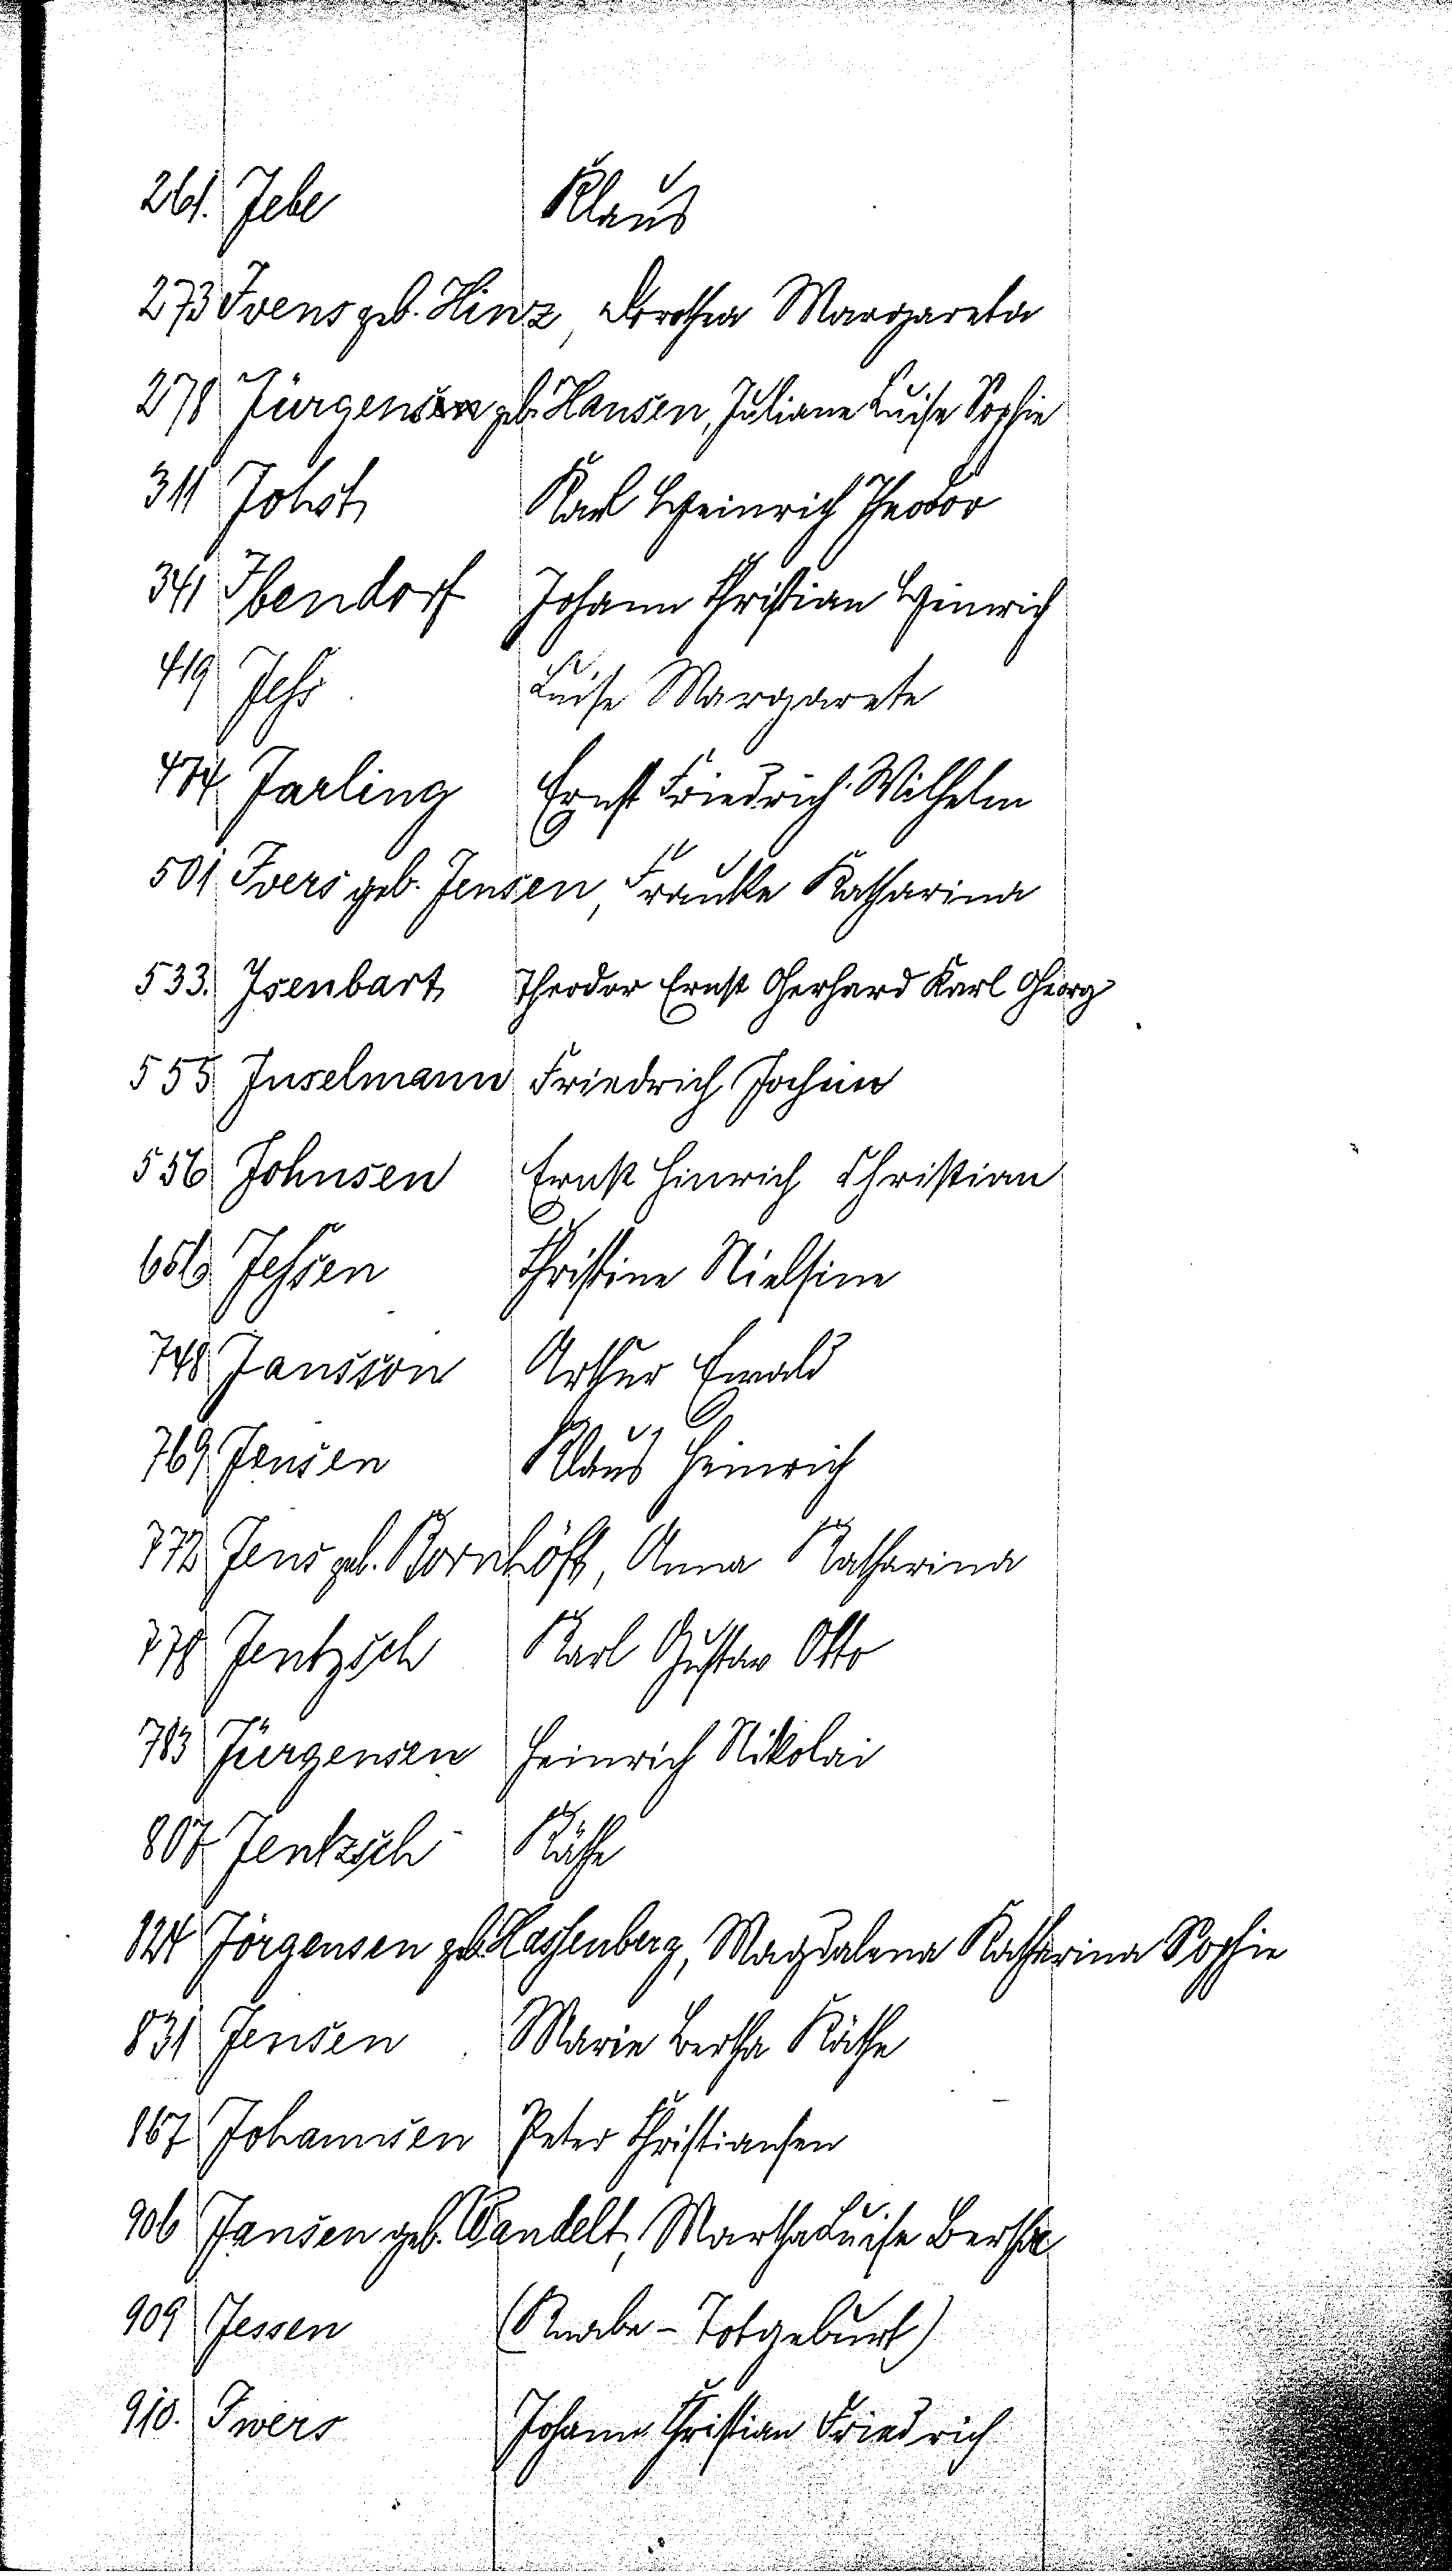 261. Jebe Klaus
273 Ivens geb. Hinz, Dorothea Margareta
278 Jürgens geb. Hansen, Juliane Luise Sophie
311 Johst Karl Heinrich Theodor
341 Ibendorf Johann Christian Heinrich
419 Jeß Luise Margarete
474 Jarling Ernst Friedrich Wilhelm
501 Ivers geb. Jensen, Frauke Katharina
533. Isenbart Theodor Ernst Gerhard Karl Georg
555 Inselmann Friedrich Jochim
556 Johnsen Ernst Hinrich Christian
656 Jeßen Christine Nielsine
748 Jansson Arthur Ewald
769 Jensen Klaus Heinrich
772 Jens geb. Bornhöft, Anna Katharina
778 Jentzsch Karl Gustav Otto
783 Jürgensen Heinrich Nikolai
807 Jentzsch Käthe
824 Jörgensen geb. Hassenberg, Magdalena Katharina Sophie
831 Jensen Marie Bertha Käthe
867 Johannsen Peter Christiansen
906 Jansen geb. Wandelt, Martha Luise Bertha
909 Jessen (Knabe - Totgeburt)
910. Iwers Johann Christian Friedrich